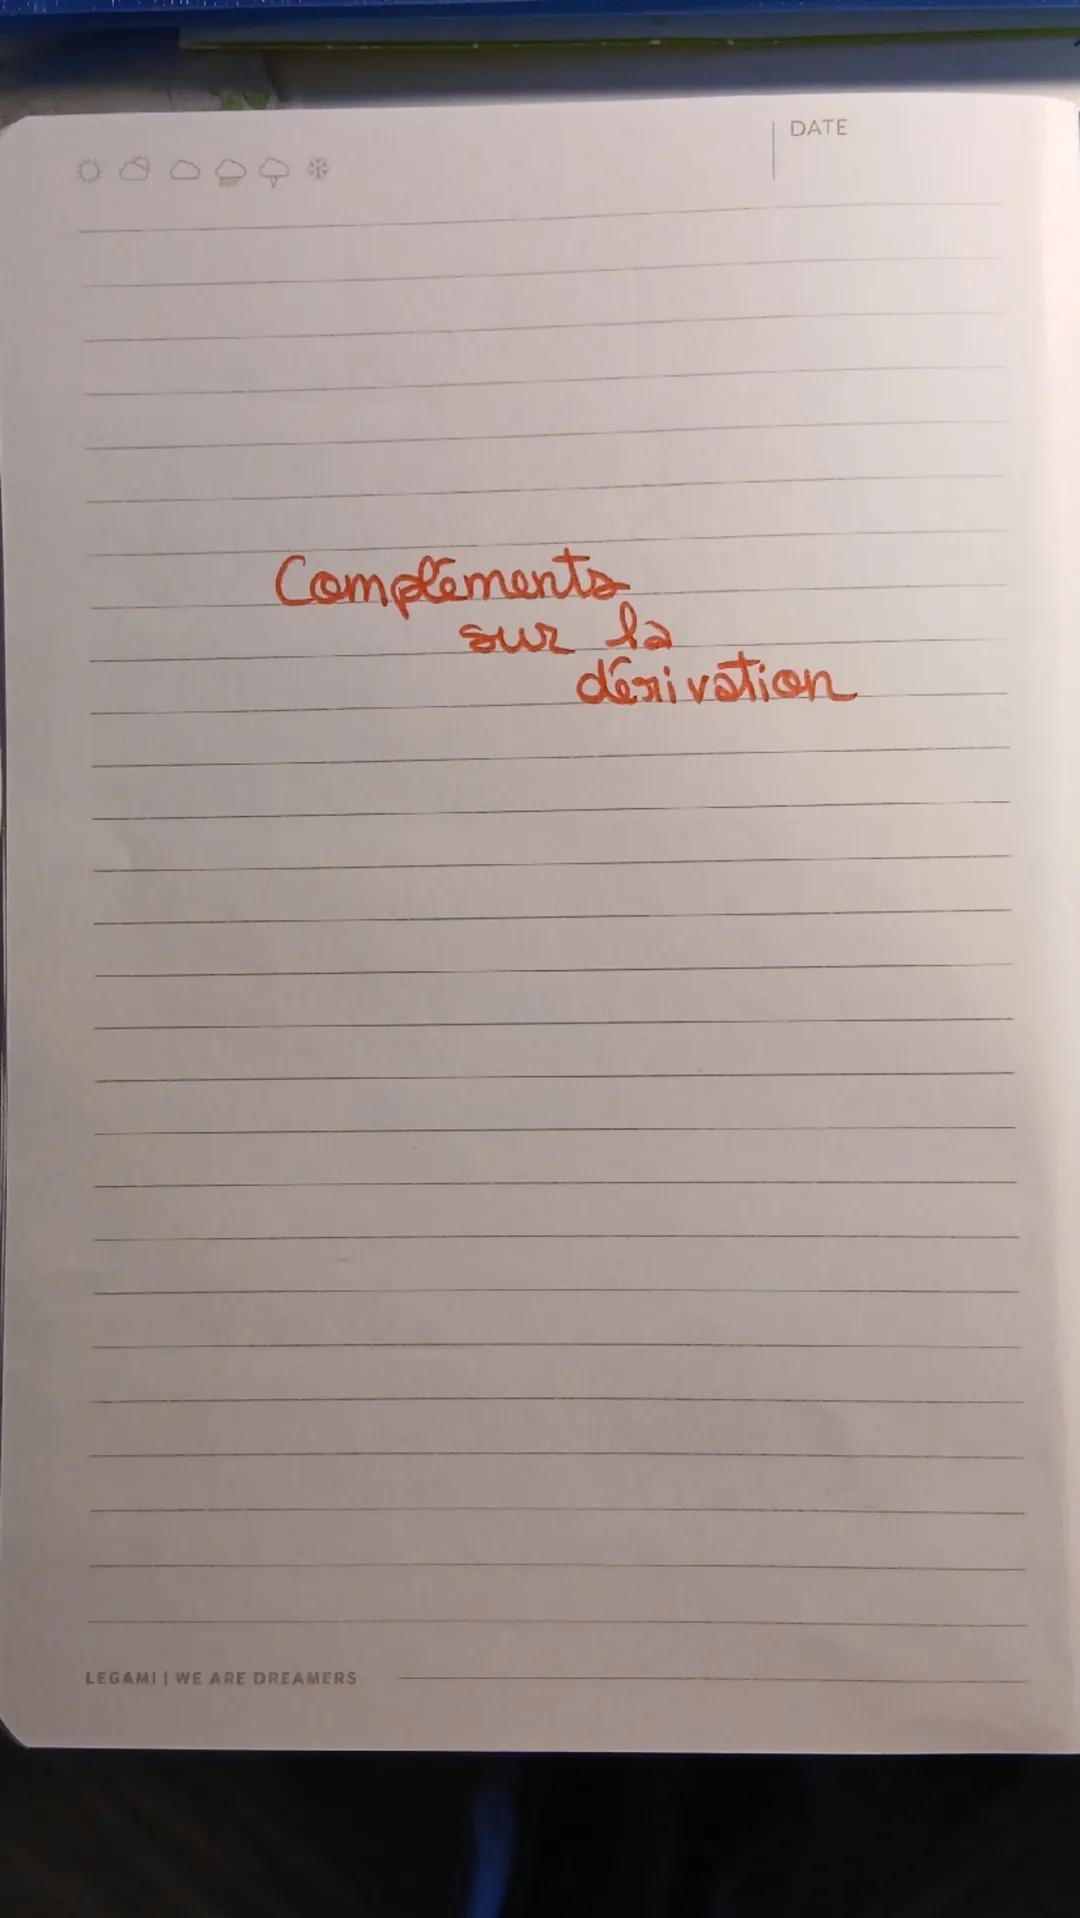 DATE
Compléments
sur la
dérivation
LEGAMI | WE ARE DREAMERS